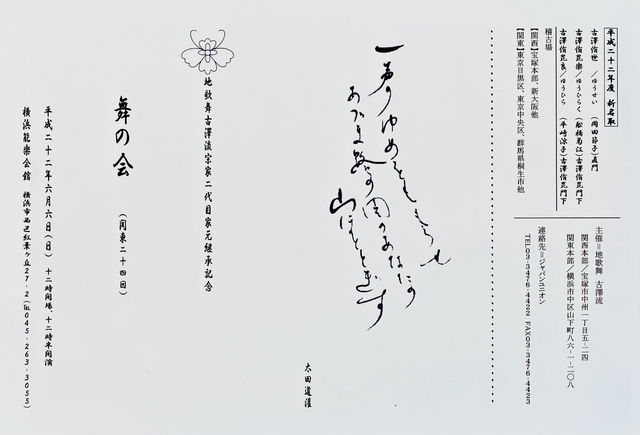 平成二十二年度 新名取
古澤侑世 /ゆうせい (岡田節子)直門
古澤侑毘樂/ゆうひらく(舩橋菊江)古澤侑毘門下
古澤侑毘良/ゆうひら(平崎涼子)古澤侑毘門下
稽古場
【関西】宝塚本部、新大阪他
【関東】東京目黒区、東京中央区、群馬県桐生市他
主催=地歌舞 古澤流
関西本部/宝塚市中州一丁目五-二四
関東本部/横浜市中区山下町八六-一-二〇八
連絡先=ジャパンユニオン
TEL03-3476-4422 FAX03-3476-4423
一声のゆめとも
山ほととぎす
太田道灌
地歌舞古澤流宗家二代目家元継承記念
舞の会 (関東二十四回)
平成二十二年六月六日(日) 十二時開場、十二時半開演
横浜能楽会館 横浜市西区紅葉ヶ丘27-2(℡045-263-3055)